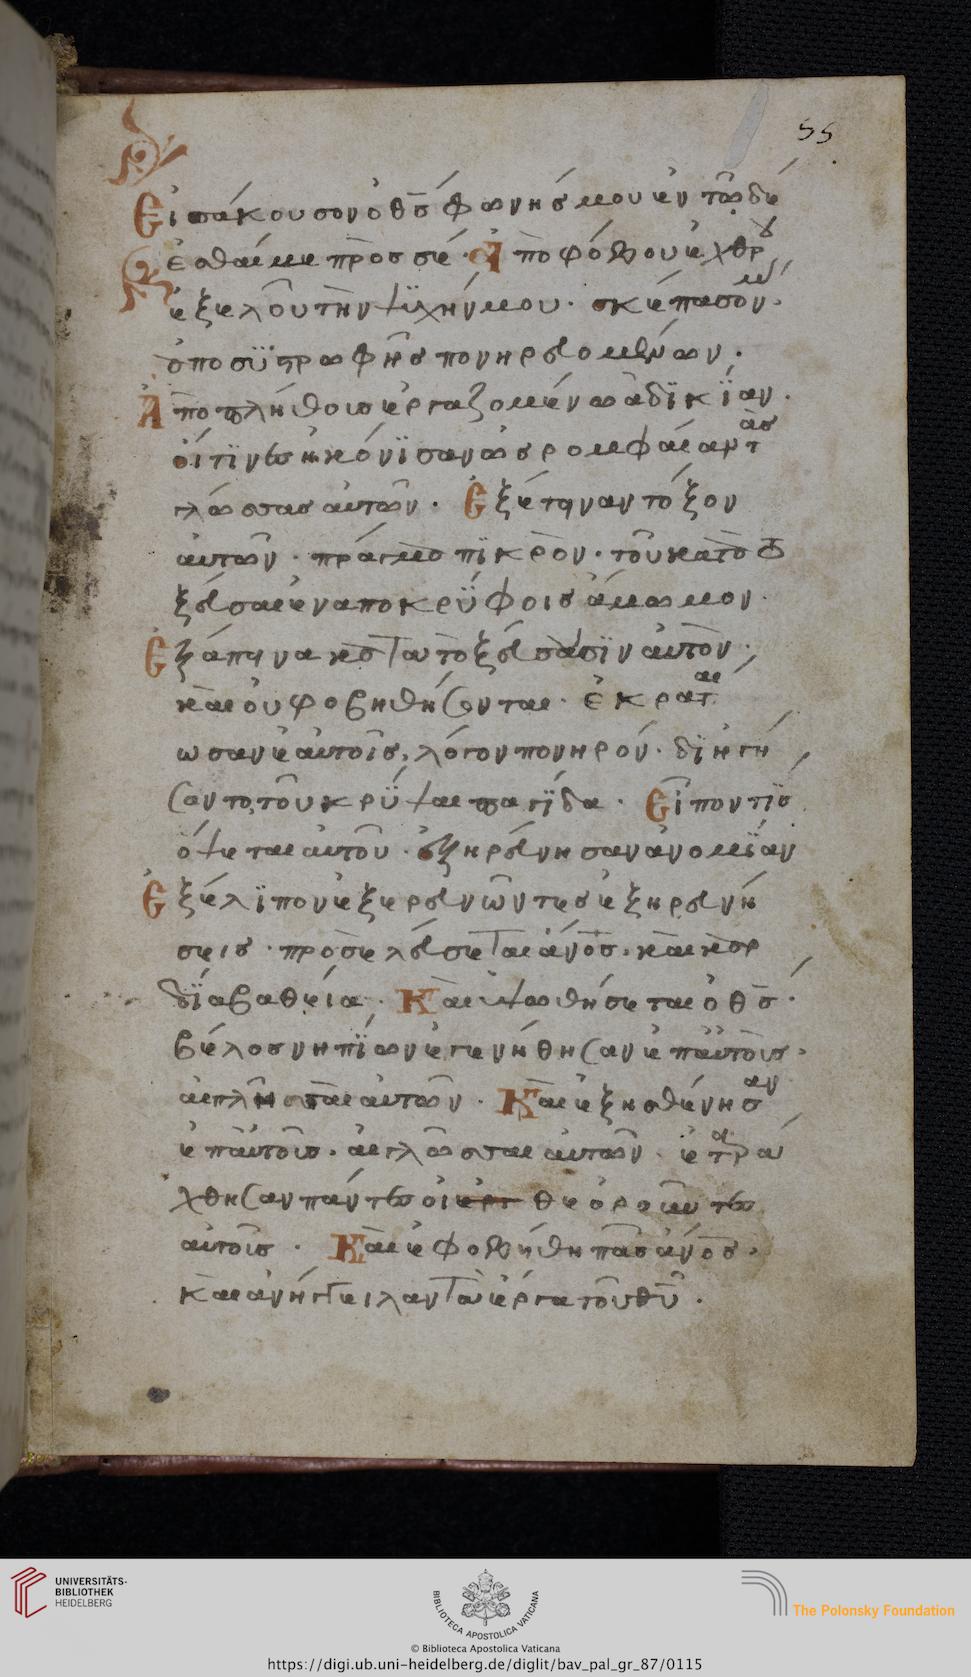 55
Εἰσάκουσον ὁ θς̄ φωνῆς μου ἐν τῶ δέ
εσθαί με πρὸς σέ · Ἀπὸ φόβου ἐχθρ
ἐξελοῦ τὴν ψϋχήν μου · σκέπασον με ·
ἀπο σϋστρωφῆς πονηρευομένων ·
Ἀπο πλήθοισ ἐργαζομένω ἀδϊκϊαν ·
οἵτϊνες ἠκόνϊσαν ὡς ρομφαίαν τὰς
γλώσσας αὐτῶν · Ἐξέτηναν τόξον
αὐτῶν · πράγμα πϊκρὸν · τοῦ κατατο
ξεῦσαι ἐν αποκρϋφοις ἄμωμον ·
Ἐξάπηνα κατατοξεύσοσϊν αὐτὸν ·
καὶ οὐ φοβηθήσονται · ἐκρατ αι
ωσαν ἑαυτοῖς, λόγον πονηρόν · δϊηγή
σαντο τοῦ κρϋψαι παγϊδα · Εἶπον τϊς
ὄψεται αὐτοῦ · ἐξηρεύνησαν ἀνομϊαν
Ἐξέλϊπον ἐξερευνῶντες ἐξηρευνή
σεις · προσελεύσεται ἄνο̄ς · καὶ καρ
δϊα βαθεία · Καὶ ὑψωθήσεται ὁ θς̄ ·
βέλος νηπϊων ἐγενήθησαν ἑ πἀυτοις ·
αἱ πληγαὶ αὐτῶν · Καὶ ἐξησθένησ αν
ἐπ αὐτοισ · αἱ γλώσσαι αὐτῶν · ἐταρά
χθησαν πάντες οἱ ερτ θεόροῦντες
αὐτοῖς · Καὶ ἐφοβήθη πᾶς ἄνο̄ς ·
καὶ ἀνήγγειλαν τὰ ἔργα τοῦ θῦ ·
UNIVERSITÄTS-
BIBLIOTHEK
HEIDELBERG
BIBLIOTECA APOSTOLICA VATICANA
The Polonsky Foundation
© Biblioteca Apostolica Vaticana
https://digi.ub.uni-heidelberg.de/diglit/bav_pal_gr_87/0115